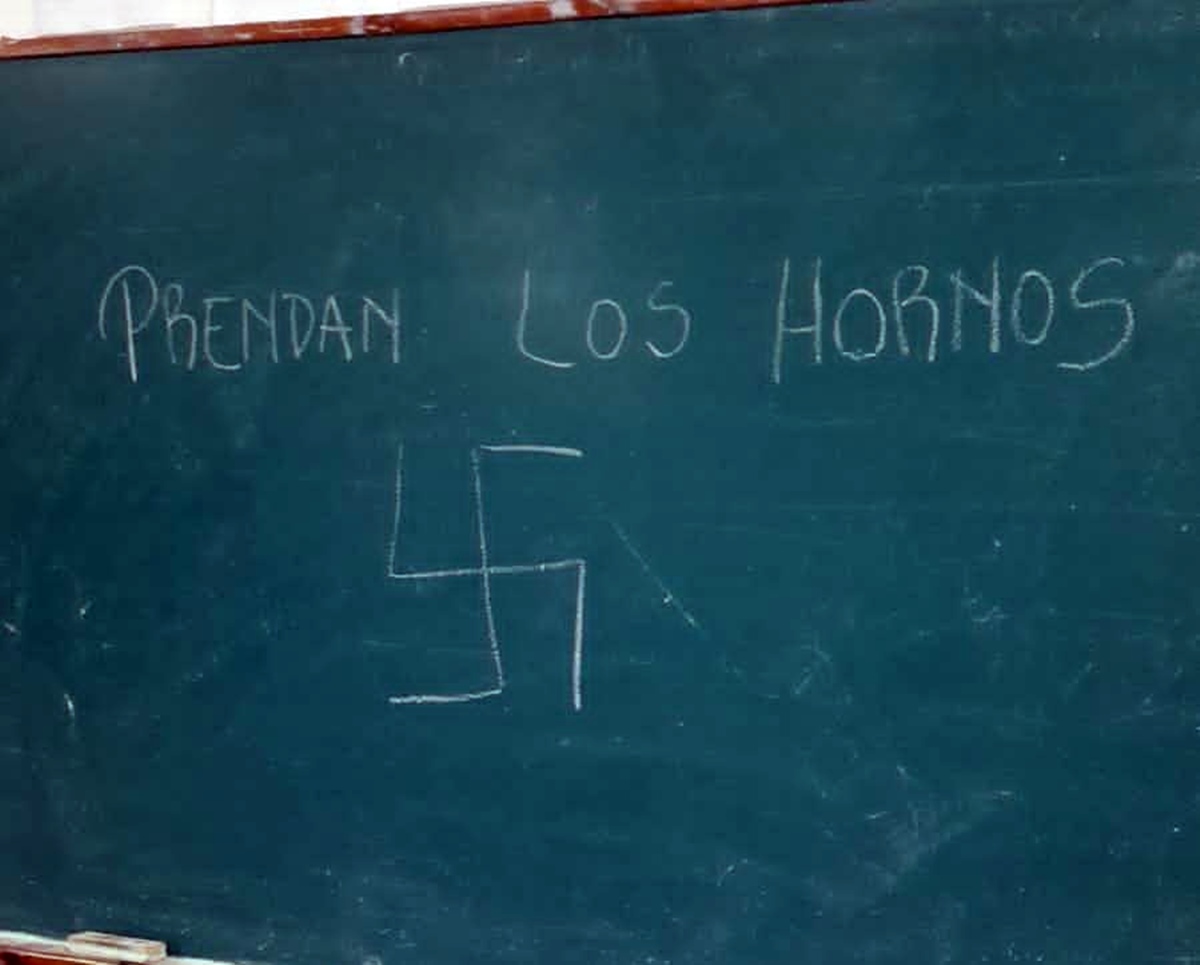 PRENDAN LOS HORNOS